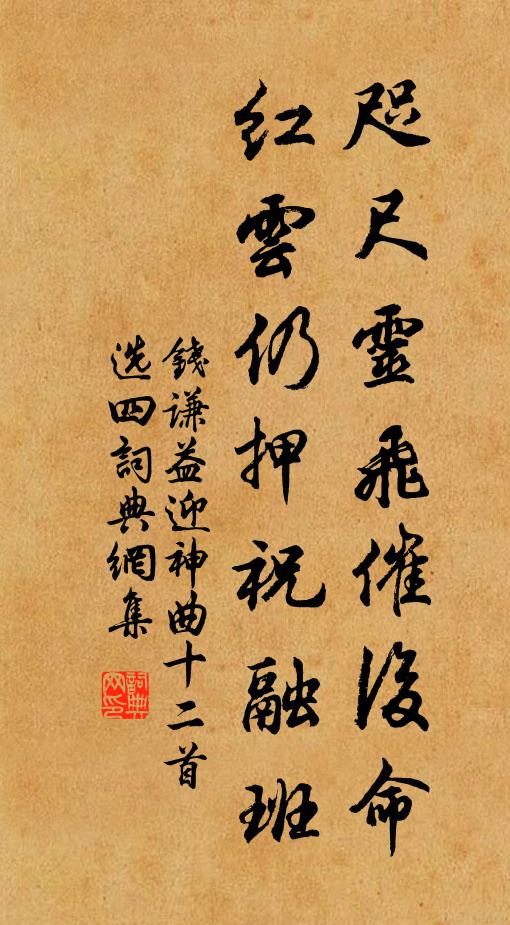 咫尺靈飛催復命
紅雲仍押祝融班
錢謙益迎神曲十二首
选四詞典網集
詞典网印